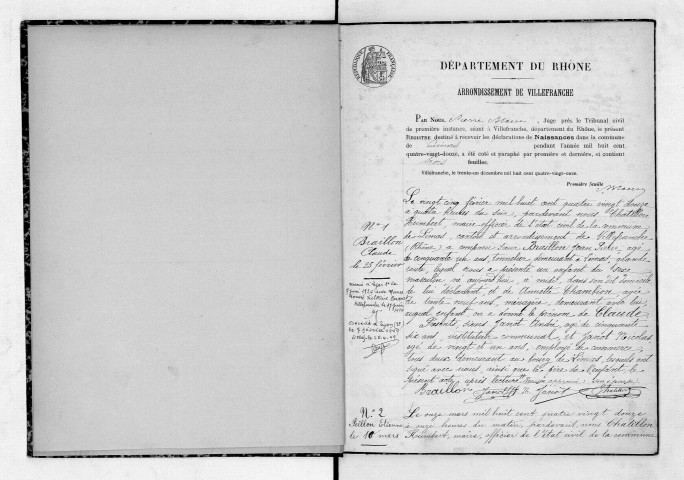 DÉPARTEMENT DU RHONE
ARRONDISSEMENT DE VILLEFRANCHE
PAR NOUS, Pierre, Juge près le Tribunal civil
de première instance, séant à Villefranche, département du Rhône, le présent
REGISTRE destiné à recevoir les déclarations de Naissances dans la commune
de Limas pendant l'année mil huit cent
quatre-vingt-douze, a été coté et paraphé par première et dernière, et contient
feuilles.
Villefranche, le trente-un décembre mil huit cent quatre-vingt-onze.
Première feuille
N° 1
Braillon
Claude
le 25 février
Le vingt cinq février mil huit cent quatre vingt douze
à quatre heures du soir, pardevant nous Chatillon
Humbert, maire officier de l'état civil de la commune
de Limas, canton et arrondissement de Villefranche
(Rhône) a comparu sieur Braillon Jean, âgé
de cinquante un ans, tonnelier demeurant à Limas,
lequel nous a présenté un enfant du sexe
masculin né aujourd'hui, à midi, dans son domicile
de lui déclarant, et de Annette
de trente neuf ans, ménagère, demeurant avec lui,
auquel enfant on a donné le prénom de Claude
Présents, sieurs Janot, âgé de cinquante
six ans, instituteur communal, et Janot Nicolas
âgé de vingt et un ans, employé de commerce,
tous deux demeurant au bourg de Limas, lesquels ont
signé avec nous, ainsi que le père de l'enfant, le
présent acte, après lecture.
Braillon Janot Janot
N° 2
Etienne
le 10 mars
Le onze mars mil huit cent quatre vingt douze
à onze heures du matin, pardevant nous Chatillon
Humbert, maire, officier de l'état civil de la commune